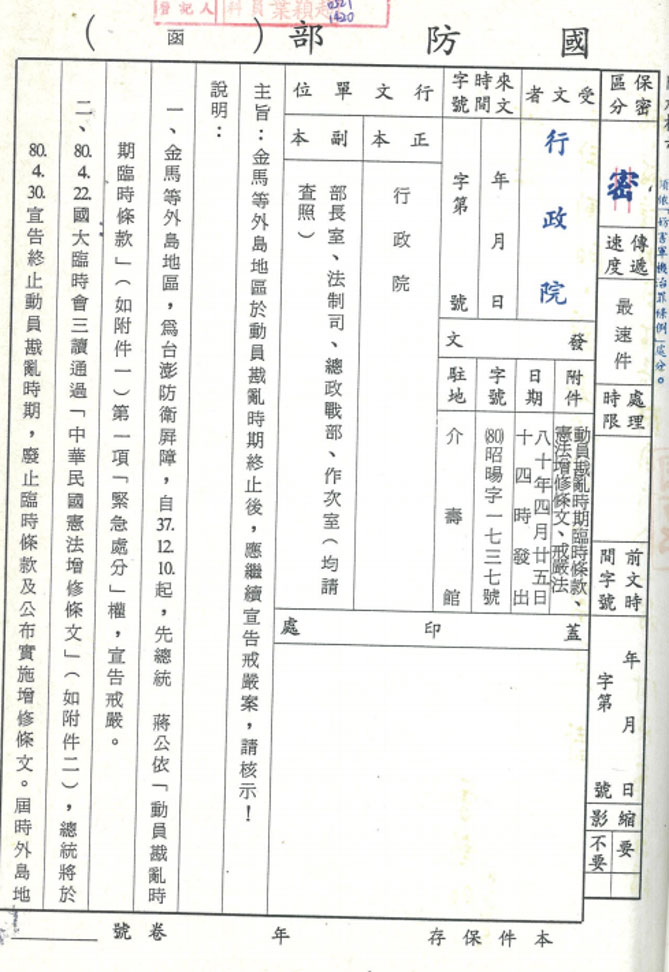 登記人 科員葉穎超
0321
1420
國防部（函）
保密區分
密
傳遞速度
最速件
處理時限
前文時間字號
年 月 日
字第 號
縮影
要
不要
須依「妨害軍機治罪條例」處分。
受文者
行政院
來文時間字號
年 月 日
字第 號
行文單位
正本
行政院
副本
部長室、法制司、總政戰部、作次室（均請
查照）
發文
附件
動員戡亂時期臨時條款、
憲法增修條文、戒嚴法
日期
八十年四月廿五日
十四時發出
字號
(80)昭暘字一七三七號
駐地
介壽館
蓋印處
主旨：金馬等外島地區於動員戡亂時期終止後，應繼續宣告戒嚴案，請核示！
說明：
一、金馬等外島地區，為台澎防衛屏障，自37.12.10.起，先總統　蔣公依「動員戡亂時
期臨時條款」（如附件一）第一項「緊急處分」權，宣告戒嚴。
二、80.4.22.國大臨時會三讀通過「中華民國憲法增修條文」（如附件二），總統將於
80.4.30.宣告終止動員戡亂時期，廢止臨時條款及公布實施增修條文。屆時外島地
本件保存 年 卷號